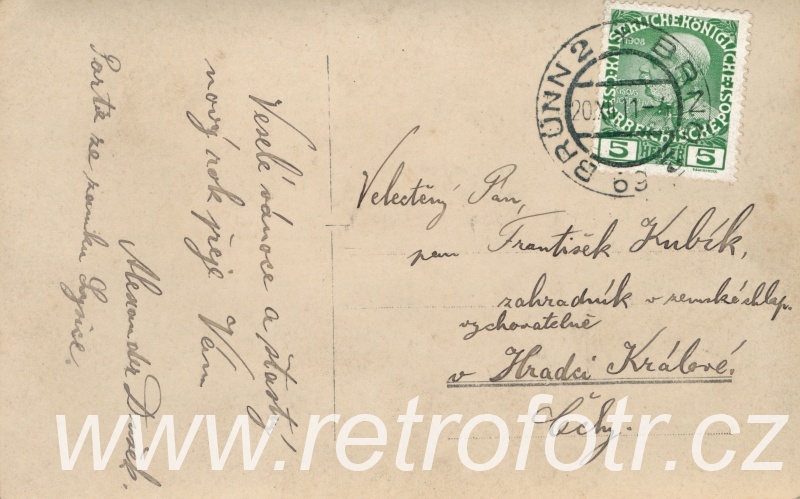 Veselé vánoce a šťastý
nový rok přeje Vám
Alexander
Partie ze zámku Lysice.
Velectěný Pán,
pan František Kubík,
zahradník v zemské chlap.
vychovatelně
v Hradci Králové.
Čechy.
BRÜNN 2 BRNO
20.XI 11
69
KAISERLICHE KÖNIGLICHE
ÖSTERREICHISCHE POST
1908
5 5
www.retrofotr.cz